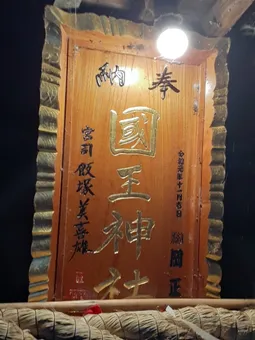 奉納
令和元年十二月吉日
國王神社
宮司 飯塚美喜雄